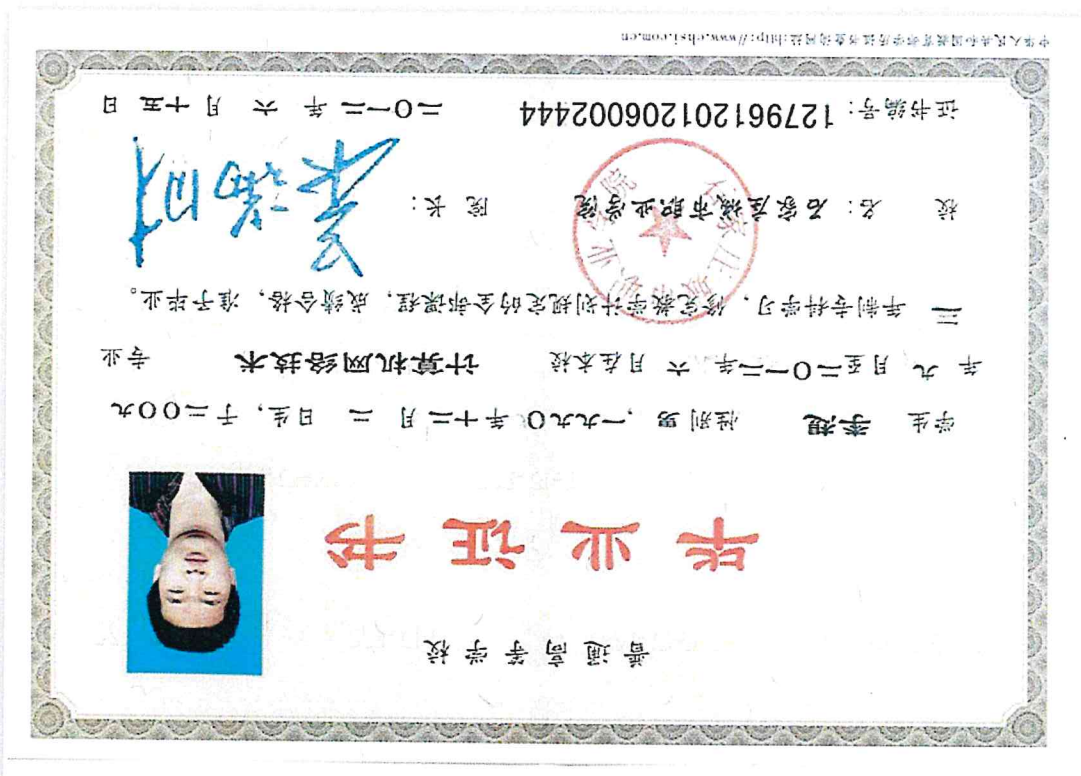 普通高等学校
毕业证书
学生 李想 性别 男 ,一九九〇年十二月 二 日生,于二〇〇九
年 九 月至二〇一二年 六 月在本校 计算机网络技术 专业
三 年制专科学习,修完教学计划规定的全部课程,成绩合格,准予毕业。
校 名:石家庄城市职业学院 院 长:
证书编号:127961201206002444 二〇一二 年 六 月 十五 日
中华人民共和国教育部学历证书查询网址:http://www.chsi.com.cn